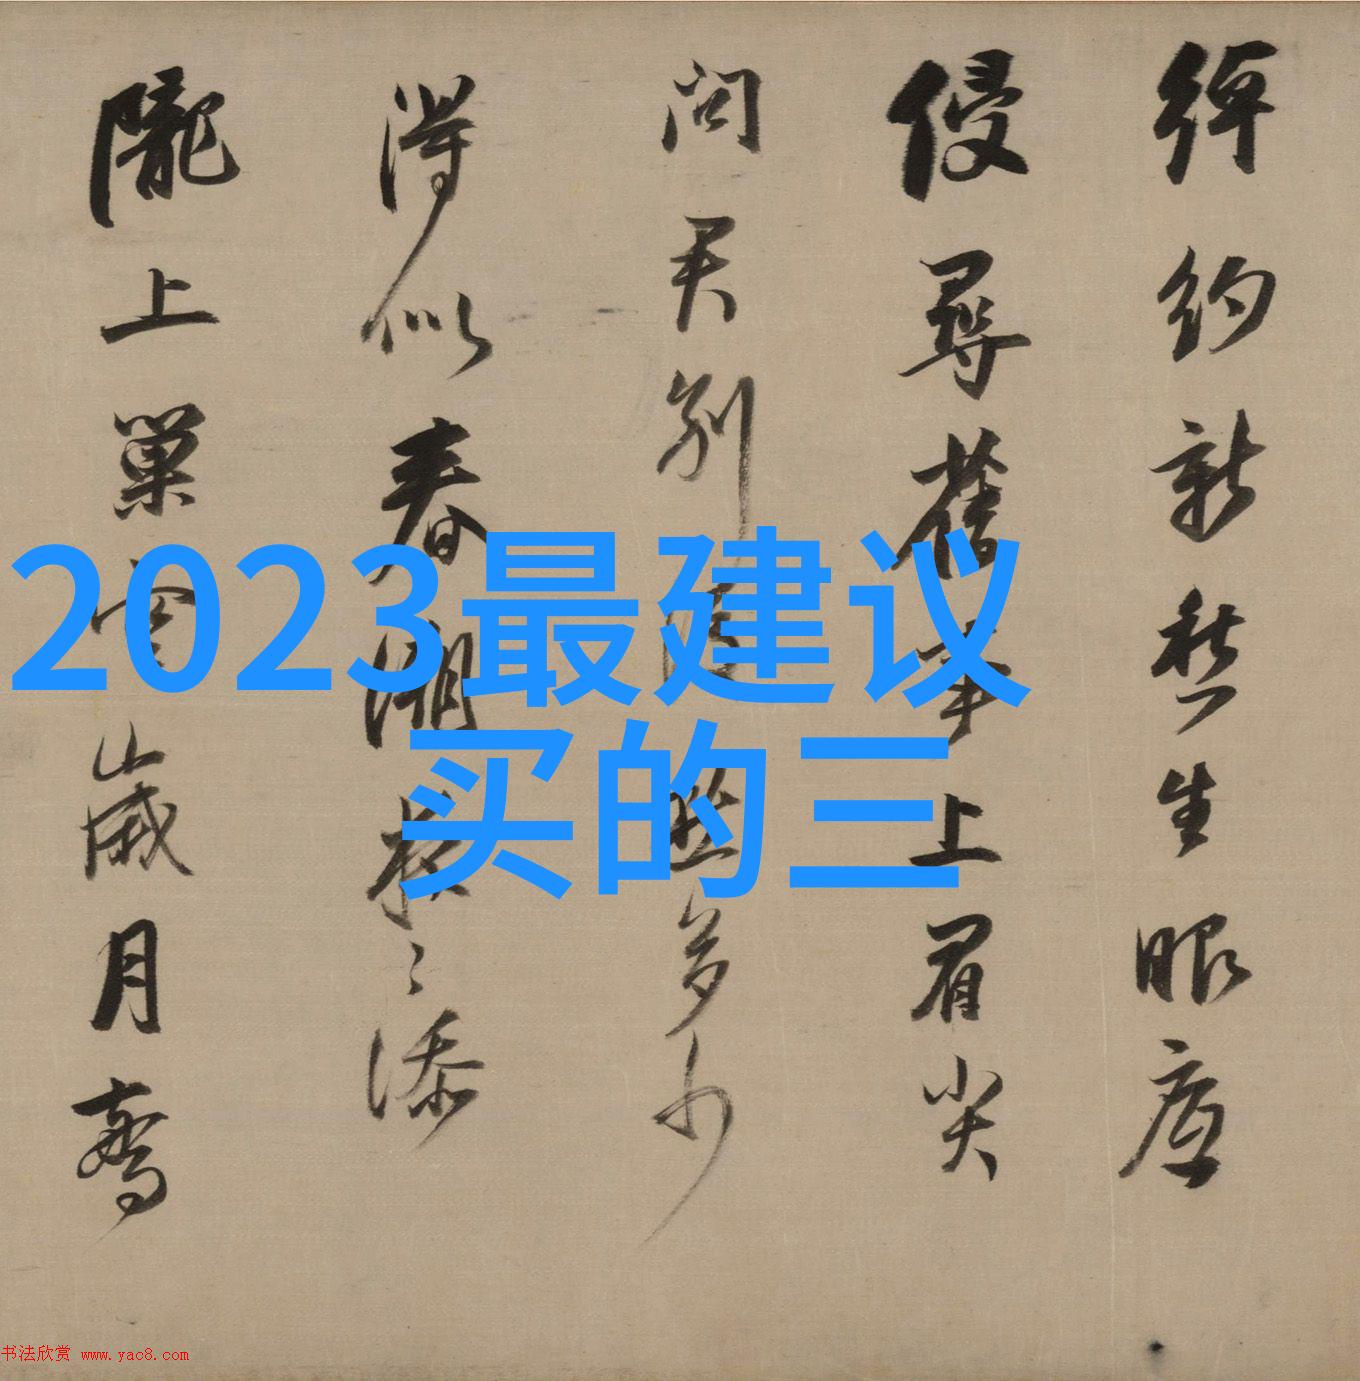 綽約新愁生眼底
侵尋舊事上眉尖
問君別后愁多少
得似春潮夜〻添
隴上巢空歲月驚
2023最建议
买的三
书法欣赏 www.yac8.com